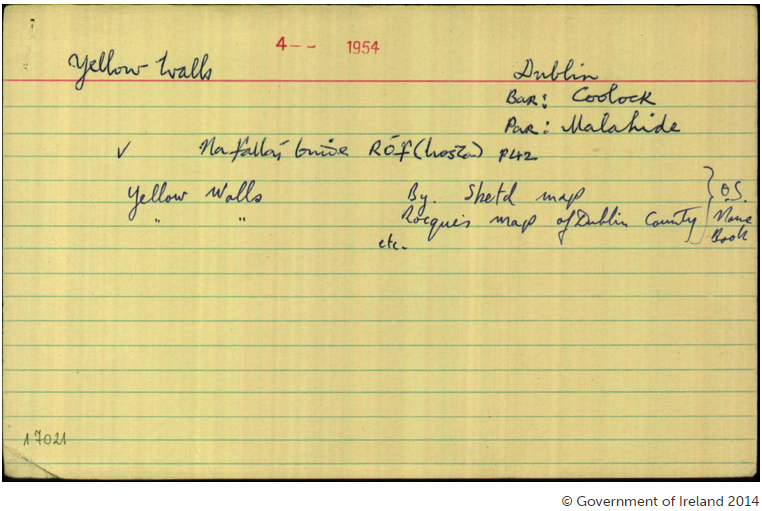 4-- 1954
Yellow Walls
Dublin
Bar: Coolock
Par: Malahide
✓ Na Fallaí Buiḋe RÓF P42
Yellow Walls By. Sketch map
" " Rocque's map of Dublin County
etc.
} O.S.
Name
Book
17021
© Government of Ireland 2014